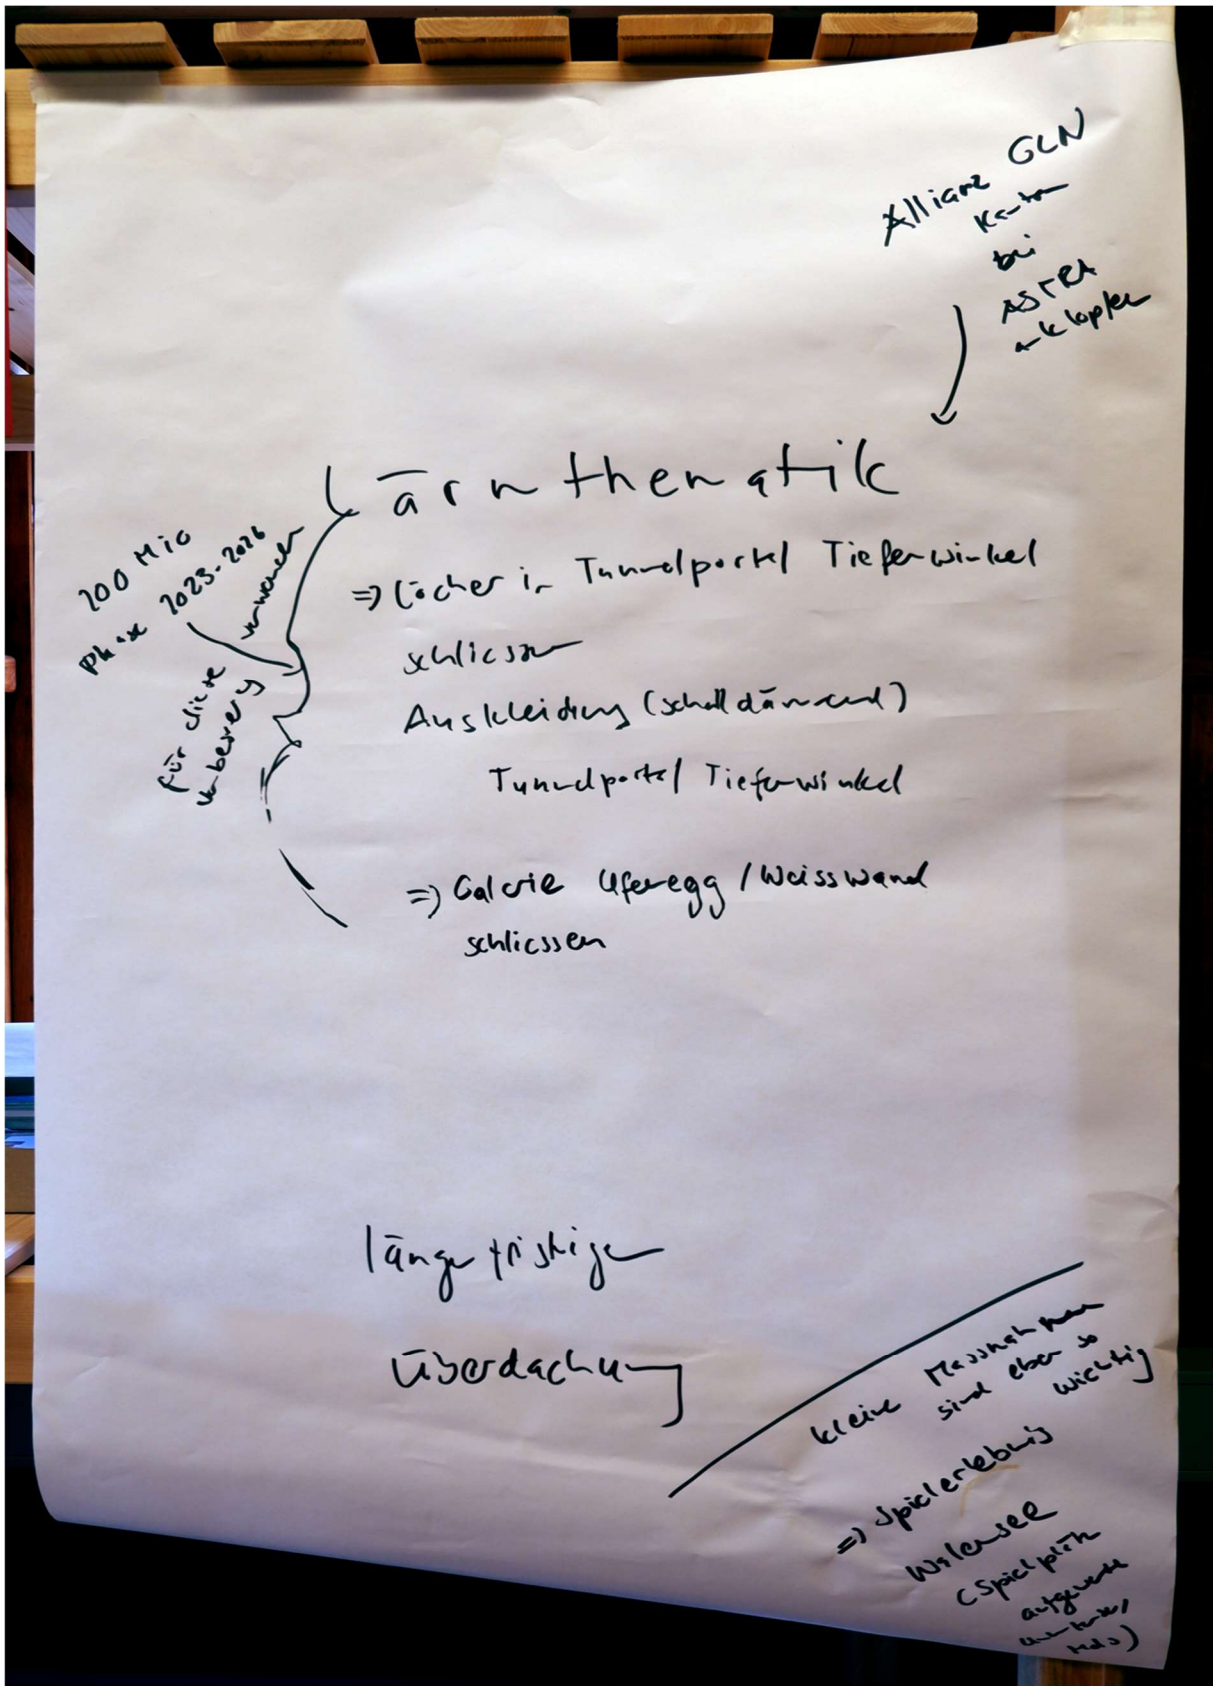 Allianz GLN
Kanton
bei
ASTRA
anklopfen
Lärmthematik
200 Mio
Phase 2023-2026
verwenden
für diese
verbesserung
=> Löcher in Tunnelportal Tiefenwinkel
schliessen
Auskleidung (schalldämmend)
Tunnelportal Tiefenwinkel
=> Galerie Uferegg / Weisswand
schliessen
längerfristige
Überdachung
kleine Massnahmen
sind eben so
wichtig
=> Spielerlebnis
Walensee
(Spielplätze